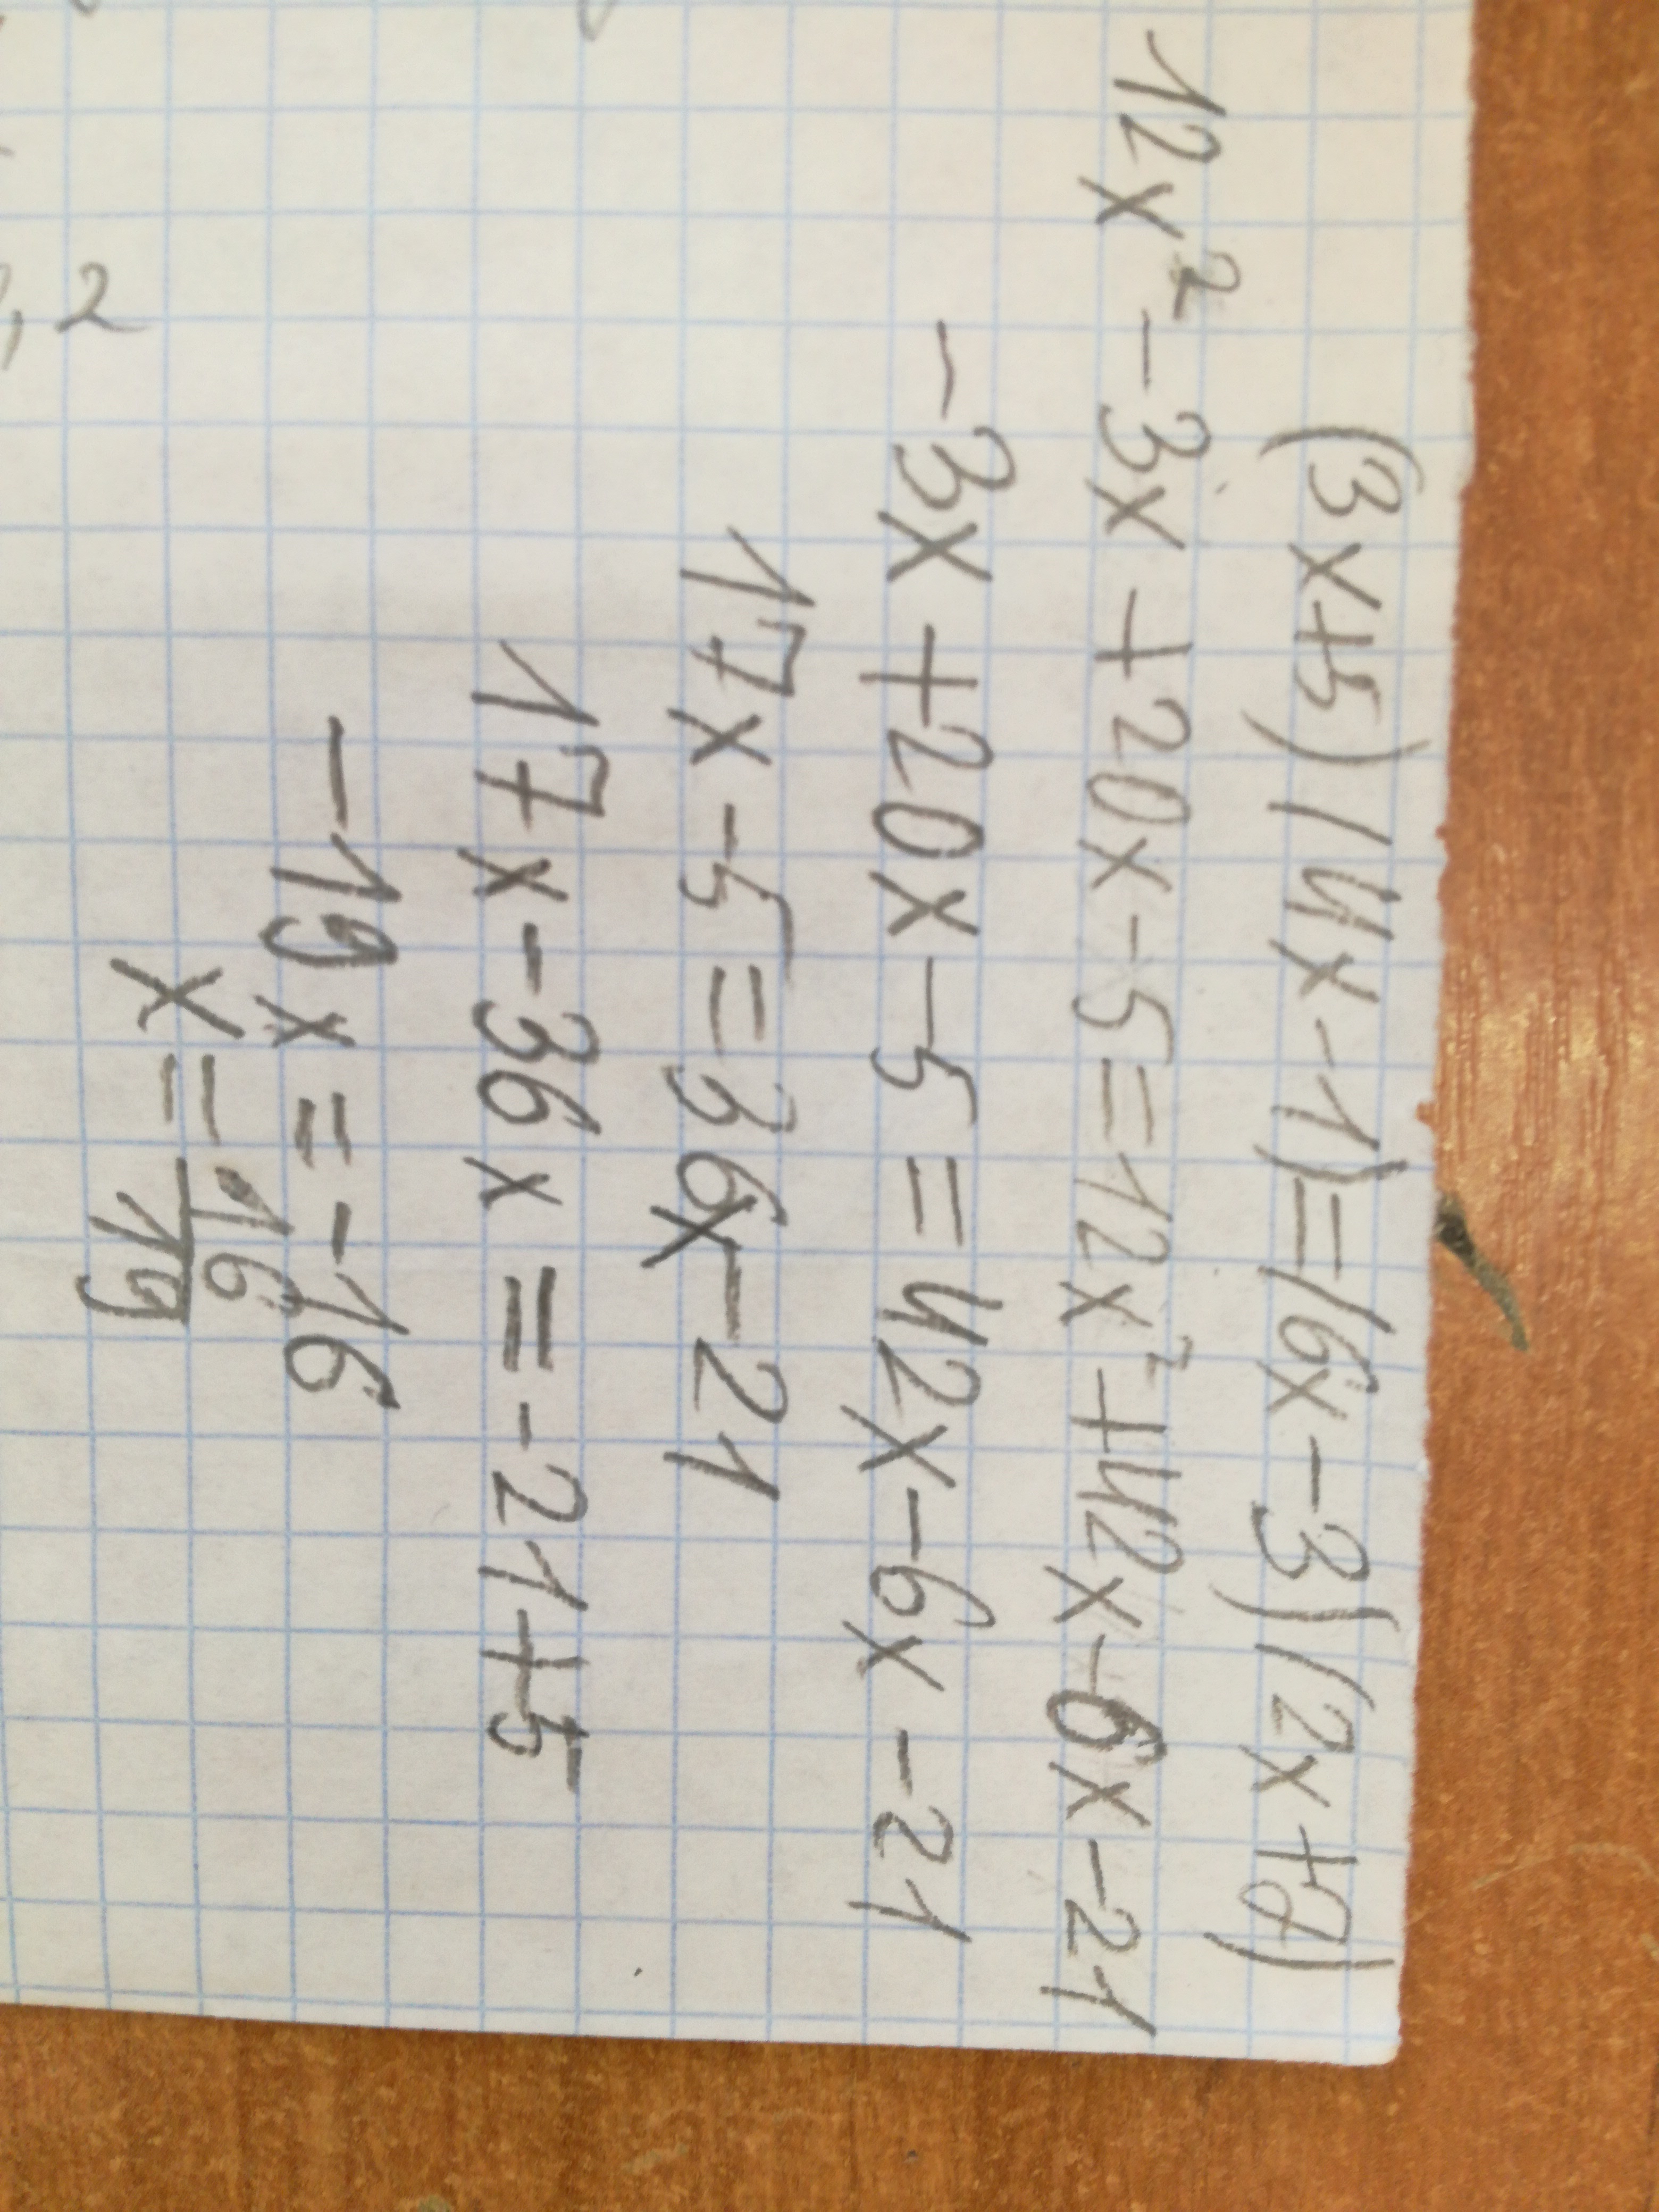 (3x+5)(4x-1)=(6x-3)(2x+7)
12x²-3x+20x-5=12x²+42x-6x-21
-3x+20x-5=42x-6x-21
17x-5=36x-21
17x-36x=-21+5
-19x=-16
x=16/19
2